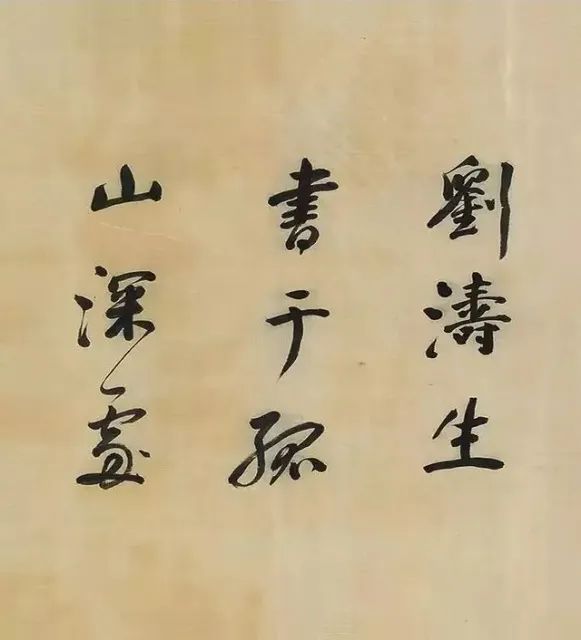 劉濤生
書于孤
山深處